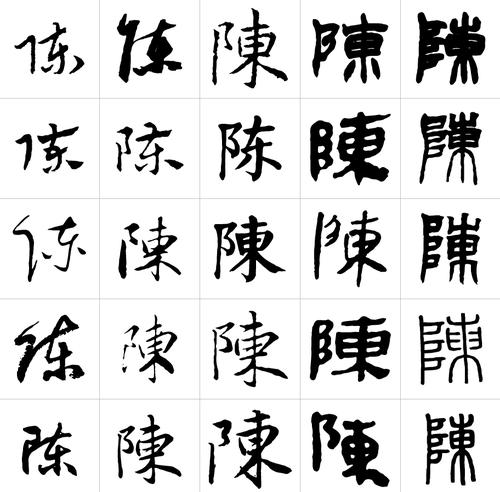 陈 陈 陳 陳 陳
陈 陈 陈 陳 陳
陈 陳 陳 陳 陳
陈 陳 陳 陳 陳
陈 陳 陳 陳 陳